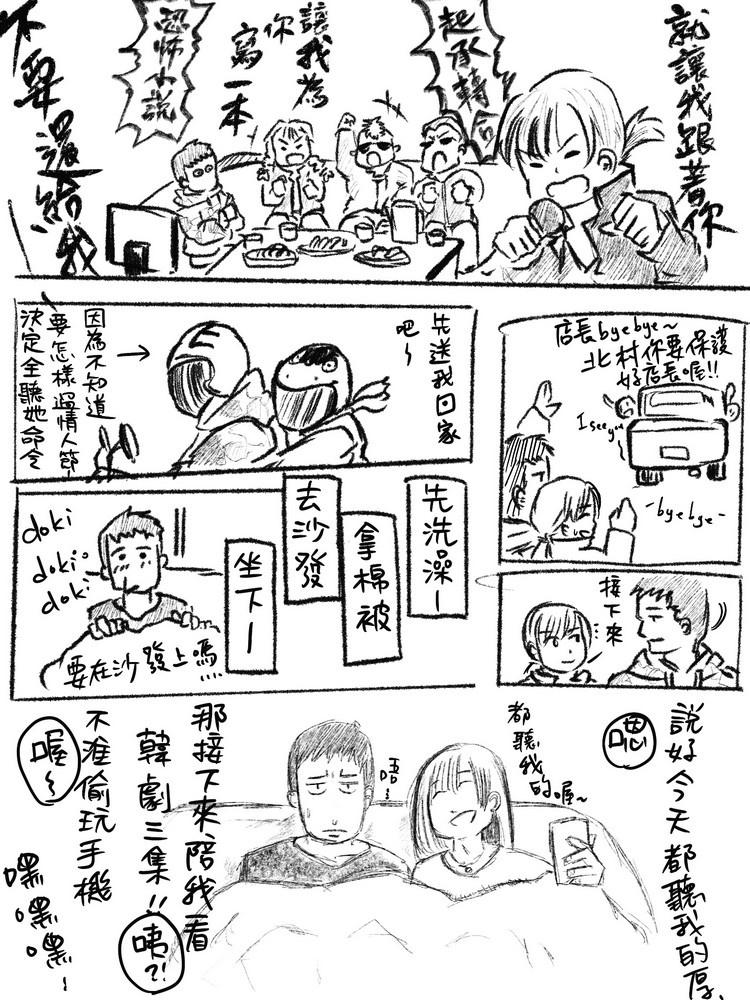 就讓我跟著你
起承轉合
讓我為
你
寫一本
恐怖小說
不要還給我
店長byebye~
北村你要保護
好店長喔!!
I see you
-byebye-
先送我回家
吧~
因為不知道
要怎樣過情人節
決定全聽她命令
接下來
...
先洗澡-
拿棉被
去沙發
坐下-
doki
doki
doki
要在沙發上嗎...
說好今天都聽我的厚
嗯
都聽我的喔~
唔~
那接下來陪我看
韓劇三集!!
咦?!
不准偷玩手機
喔~
嘿嘿嘿~